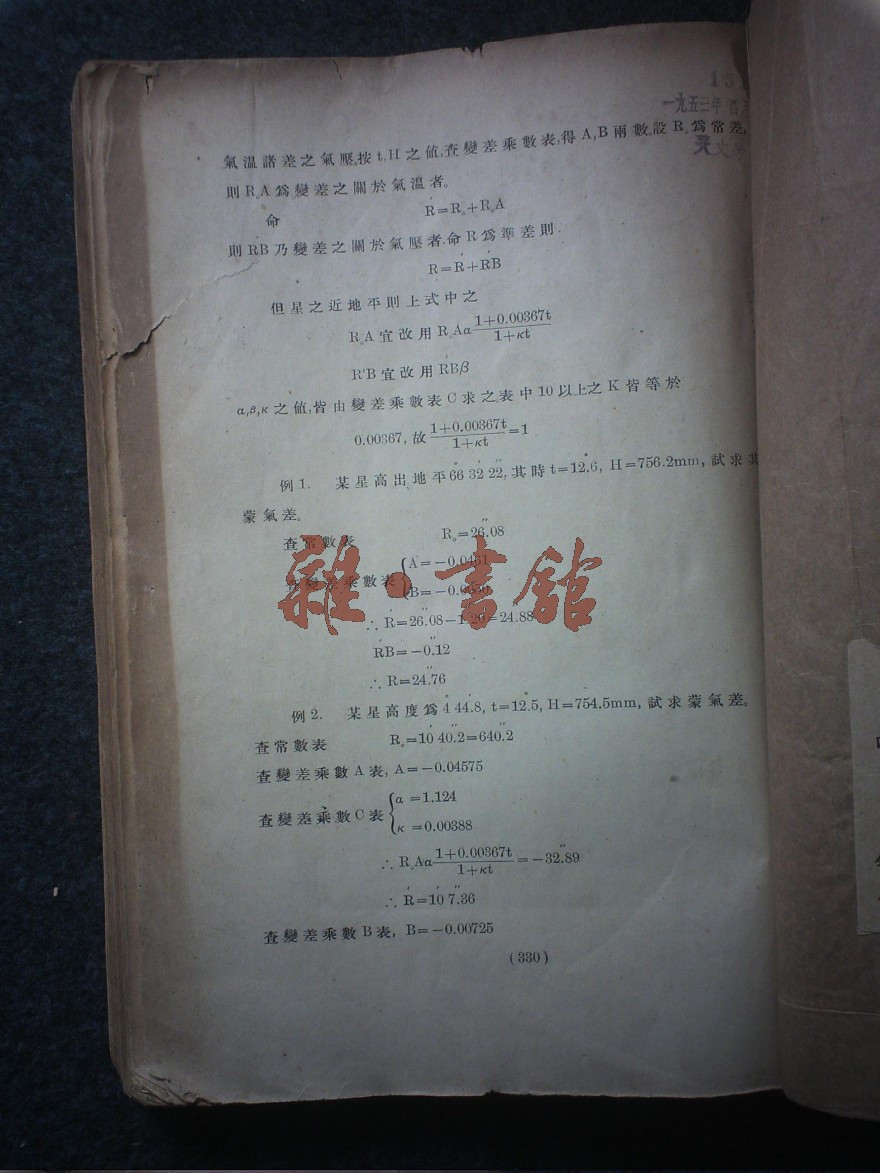 一九五三年
天文
氣溫諸差之氣壓。按t,H之値,查變差乘數表,得A,B兩數。設R₀爲常差,
則R₀A爲變差之關於氣溫者。
命 R′=R₀+R₀A
則R′B乃變差之關於氣壓者,命R爲準差則
R=R′+R′B
但星之近地平則上式中之
R₀A宜改用R₀Aα (1+0.00367t)/(1+κt)
R′B宜改用R′Bβ
α,β,κ之値,皆由變差乘數表C求之。表中10以上之K皆等於
0.00367,故 (1+0.00367t)/(1+κt)=1
例1. 某星高出地平66°32′22″,其時t=12°.6, H=756.2mm,試求其
蒙氣差。
查常數表 R₀=26″.08
查變差乘數表{A=-0.0461
B=-0.0050
∴ R′=26″.08-1.20=24.88
R′B=-0″.12
∴ R=24″.76
例2. 某星高度爲4°44′.8, t=12°.5, H=754.5mm,試求蒙氣差。
查常數表 R₀=10′40″.2=640″.2
查變差乘數A表, A=-0.04575
查變差乘數C表{α=1.124
κ=0.00388
∴ R₀Aα (1+0.00367t)/(1+κt)=-32″.89
∴ R′=10′7″.36
查變差乘數B表, B=-0.00725
(330)
雜·書舘